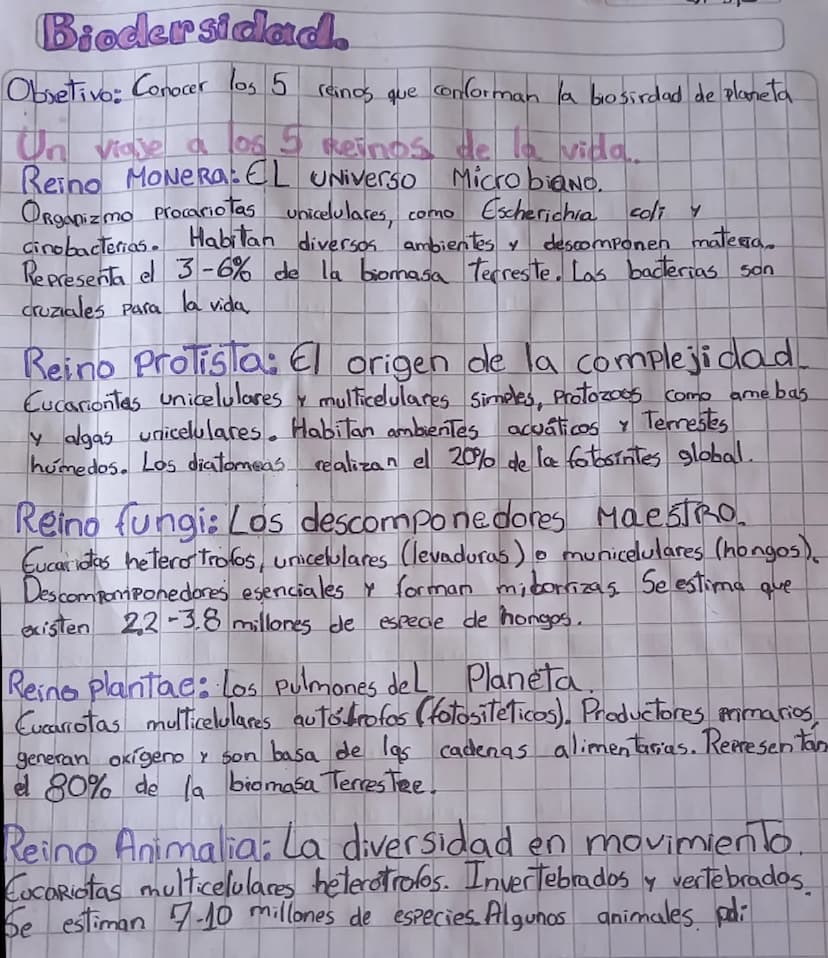 Biodersidad.
Obsetivo: Conocer los 5 reinos que conforman la biosirdad de planeta
Un viaje a los 5 Reinos de la vida.
Reino MONERA: EL UNIVERSO Microbiano.
Organizmo procariotas unicelulares, como Escherichia coli y
cinobacterias. Habitan diversos ambientes y descomponen materia.
Representa el 3-6% de la biomasa Terreste. Las bacterias son
cruziales para la vida
Reino Protista: El origen de la complejidad.
Eucariontas unicelulares y multicelulares simples, Protozoos como amebas
y algas unicelulares. Habitan ambientes acuáticos y Terrestes
húmedos. Los diatomeas realizan el 20% de la fotosintes global.
Reino fungi: Los descomponedores MaesTRO.
Eucariotas heterotrofos, unicelulares (levaduras) o municelulares (hongos).
Descomponiponedores esenciales y forman miborrizas Se estima que
existen 2,2-3,8 millones de especie de hongos.
Reino plantae: Los pulmones del Planeta.
Eucarrotas multicelulares autótrofos (fotositeticos). Productores primarios,
generan oxígeno y son basa de las cadenas alimentarias. Representan
el 80% de la biomasa Terrestee.
Reino Animalia: La diversidad en movimiento.
Eucariotas multicelulares heterotrofos. Invertebrados y vertebrados.
Se estiman 7-10 millones de especies. Algunos animales